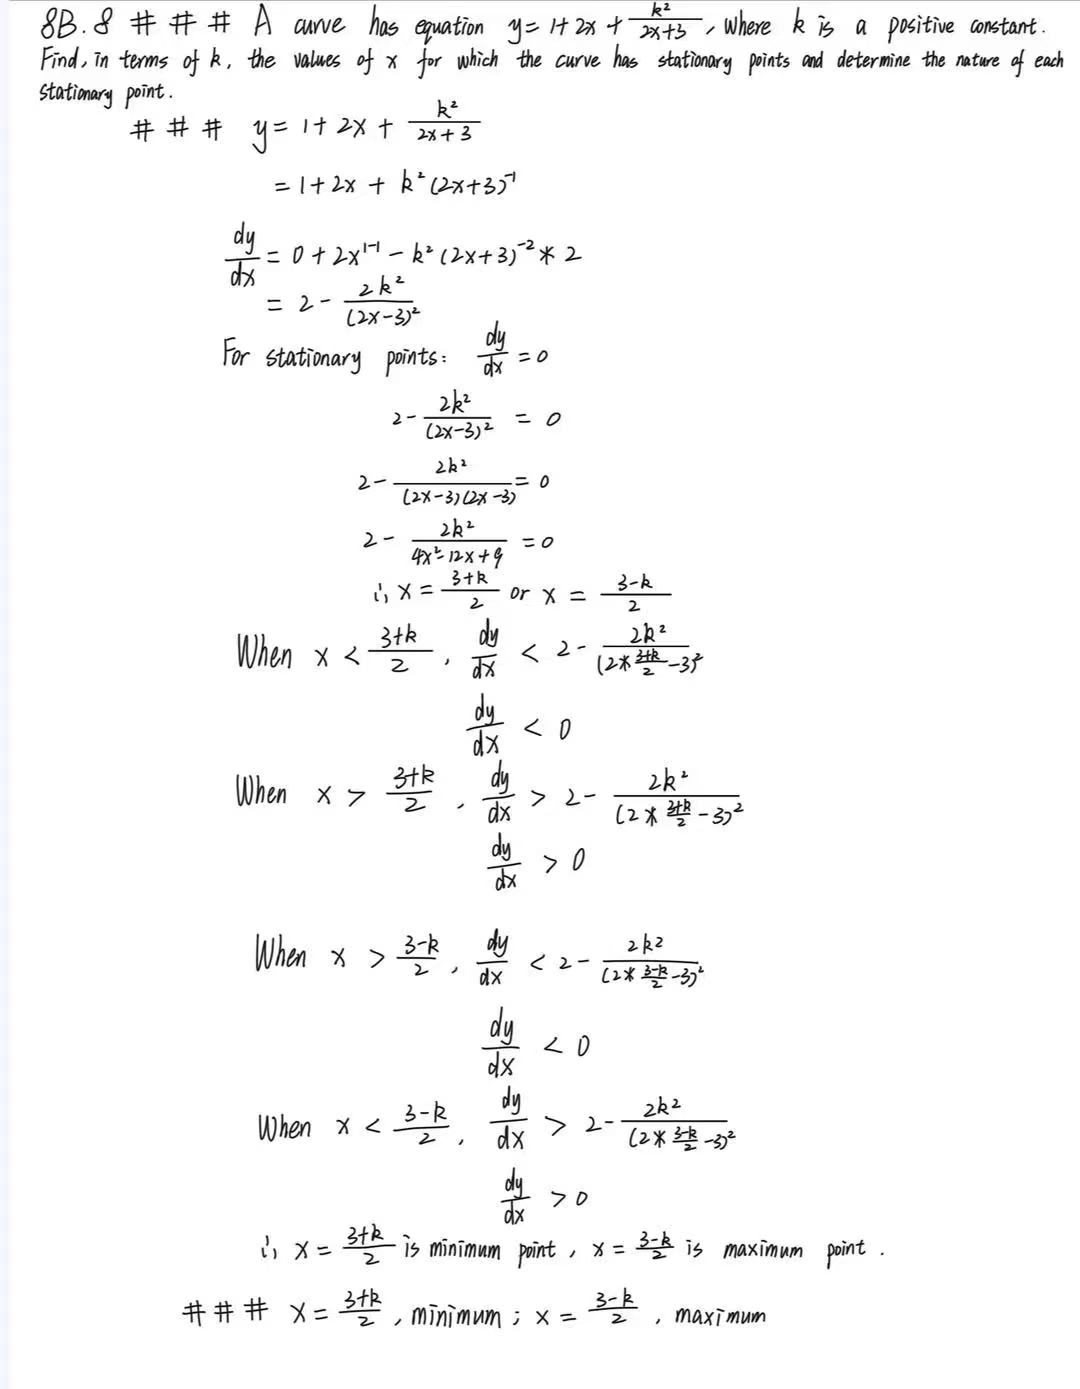 8B.8 # # # A curve has equation y = 1 + 2x + k²/(2x+3), where k is a positive constant.
Find, in terms of k, the values of x for which the curve has stationary points and determine the nature of each
stationary point.
# # # y = 1 + 2x + k²/(2x+3)
= 1 + 2x + k²(2x+3)⁻¹
dy/dx = 0 + 2x¹⁻¹ - k²(2x+3)⁻² * 2
= 2 - 2k²/(2x-3)²
For stationary points: dy/dx = 0
2 - 2k²/(2x-3)² = 0
2 - 2k²/((2x-3)(2x-3)) = 0
2 - 2k²/(4x²-12x+9) = 0
∴ x = (3+k)/2 or x = (3-k)/2
When x < (3+k)/2, dy/dx < 2 - 2k²/(2*(3+k)/2-3)²
dy/dx < 0
When x > (3+k)/2, dy/dx > 2 - 2k²/(2*(3+k)/2-3)²
dy/dx > 0
When x > (3-k)/2, dy/dx < 2 - 2k²/(2*(3-k)/2-3)²
dy/dx < 0
When x < (3-k)/2, dy/dx > 2 - 2k²/(2*(3-k)/2-3)²
dy/dx > 0
∴ x = (3+k)/2 is minimum point, x = (3-k)/2 is maximum point.
# # # x = (3+k)/2, minimum; x = (3-k)/2, maximum